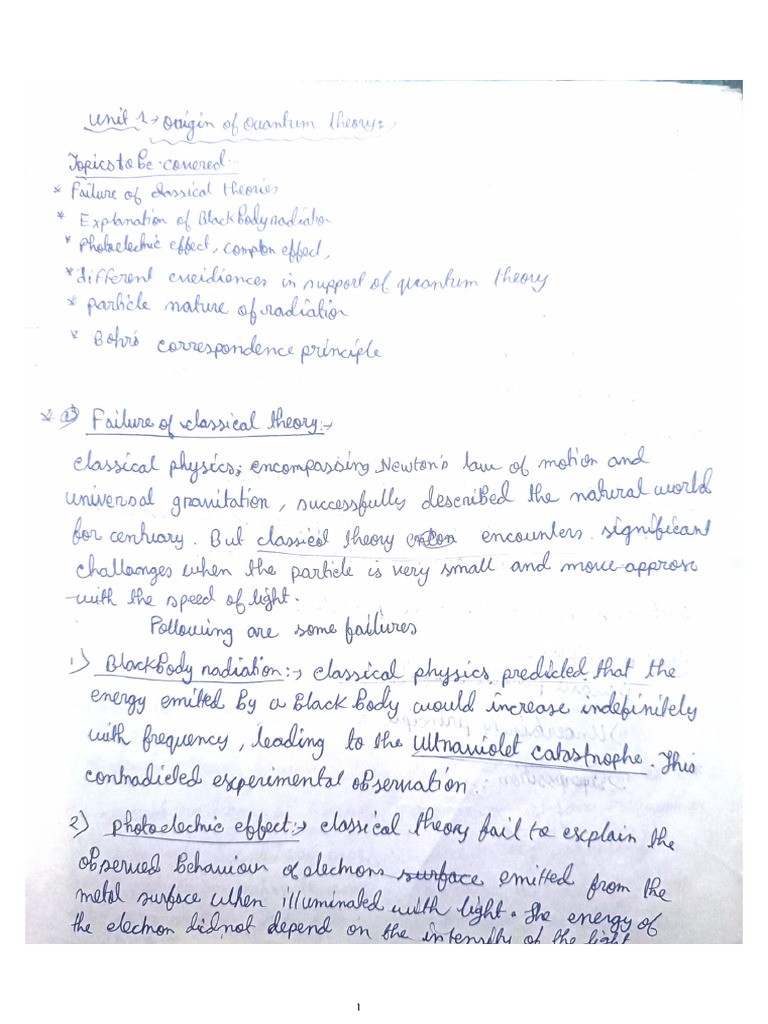 Unit 1→ Origin of Quantum theory:-
Topics to be covered:-
* Failure of classical theories
* Explanation of Blackbody radiation
* Photoelectric effect, compton effect,
* different eveidiences in support of quantum theory
* particle nature of radiation
* Bohr's correspondence principle
* 1) Failure of classical theory:→
classical physics, encompassing Newton's law of motion and
universal gravitation, successfully described the natural world
for centuary. But classical theory encounters significant
challanges when the particle is very small and move approx
with the speed of light.
Following are some failures
1) Blackbody radiation:→ classical physics predicted that the
energy emitted by a Black Body would increase indefinitely
with frequency, leading to the Ultraviolet catastrophe. This
contradicted experimental observation.
2) photoelectric effect:→ classical theory fail to explain the
observed behaviour of electrons surface emitted from the
metal surface when illuminated with light. The energy of
the electron did not depend on the intensity of the light
1